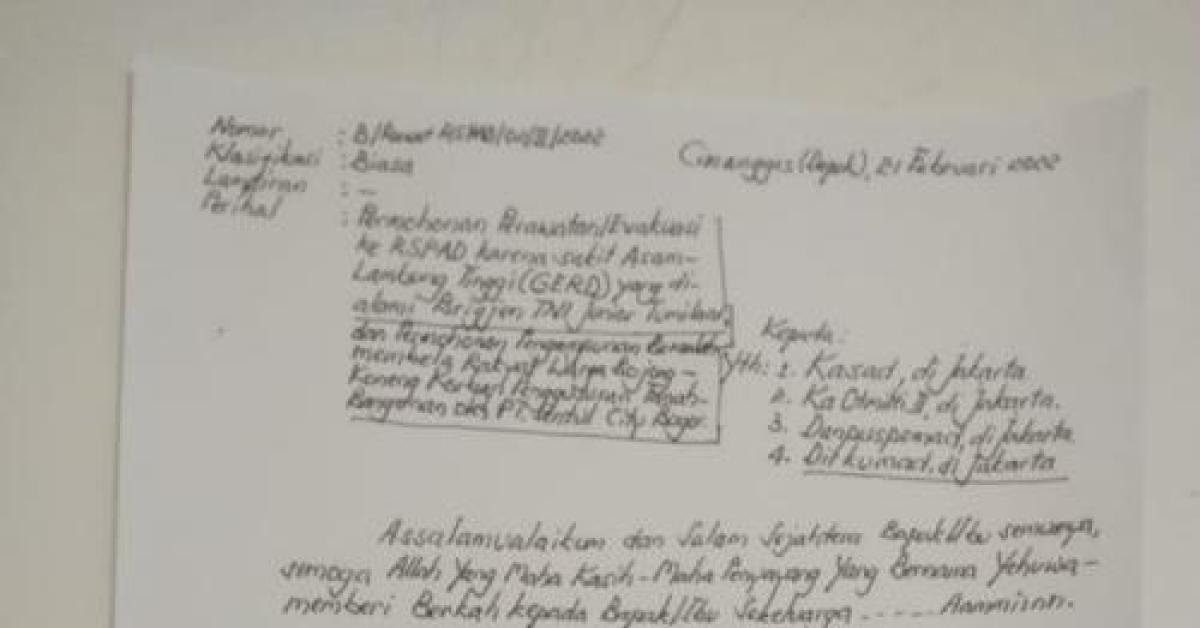 Nomor : B/
Cimanggis (Depok), 21 Februari 2022
Klasifikasi : Biasa
Lampiran : -
Perihal : Permohonan Perawatan/Evakuasi
ke RSPAD karena sakit Asam-
Lambung Tinggi (GERD) yang di-
alami Brigjen TNI Junior Tumilaar,
dan Permohonan Pengampunan
membela Rakyat Warga Bojong-
Koneng Korban Penggusuran Tanah-
Bangunan oleh PT. Sentul City Bogor.
Kepada:
Yth: 1. Kasad, di Jakarta
2. Ka Otmilti II, di Jakarta.
3. Danpuspomad, di Jakarta
4. Dirkumad, di Jakarta
Assalamualaikum dan Salam Sejahtera Bapak/Ibu semuanya,
semoga Allah Yang Maha Kasih-Maha Penyayang Yang Bernama Yehuwa-
memberi Berkah kepada Bapak/Ibu Sekeluarga ..... Aammiinn.